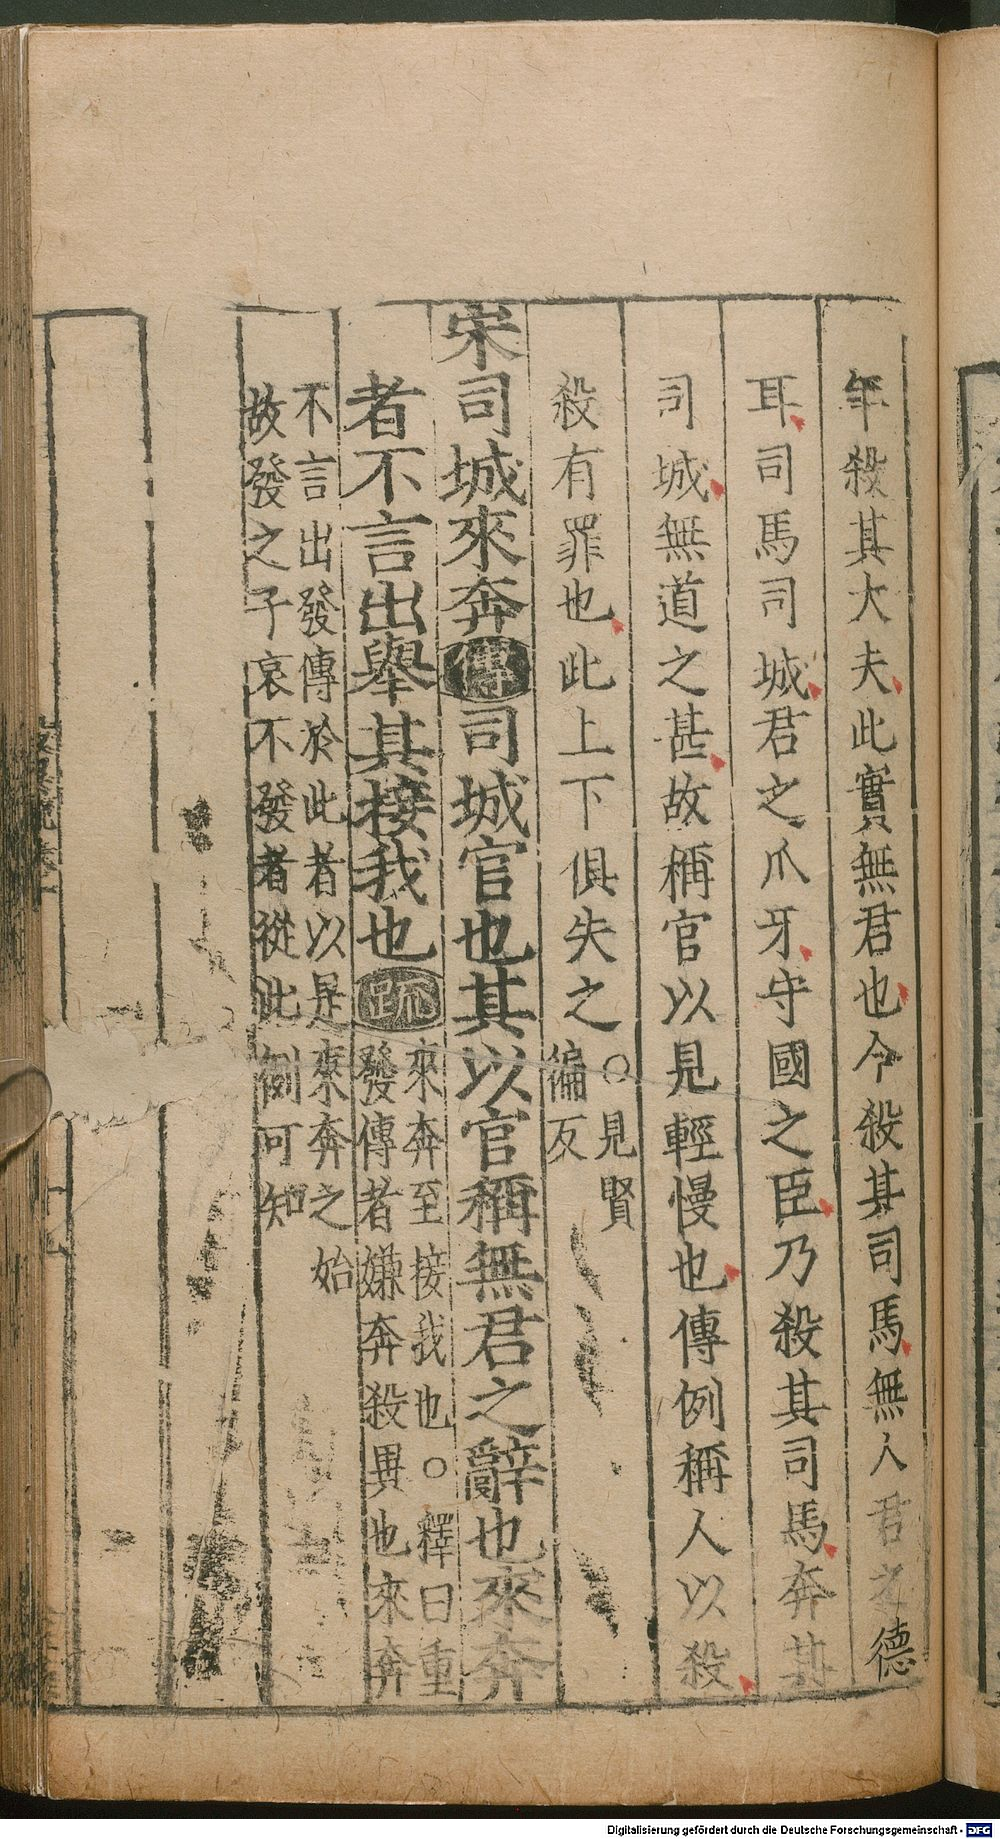 年殺其大夫此實無君也今殺其司馬無人君之德
耳司馬司城君之爪牙守國之臣乃殺其司馬奔其
司城無道之甚故稱官以見輕慢也傳例稱人以殺
殺有罪也此上下俱失之○見賢
徧反
宋司城來奔傳司城官也其以官稱無君之辭也來奔
者不言出舉其接我也疏來奔至接我也○釋曰重
發傳者嫌奔殺異也來奔
不言出發傳於此者以是來奔之始
故發之子哀不發者從此例可知
Digitalisierung gefördert durch die Deutsche Forschungsgemeinschaft - DFG